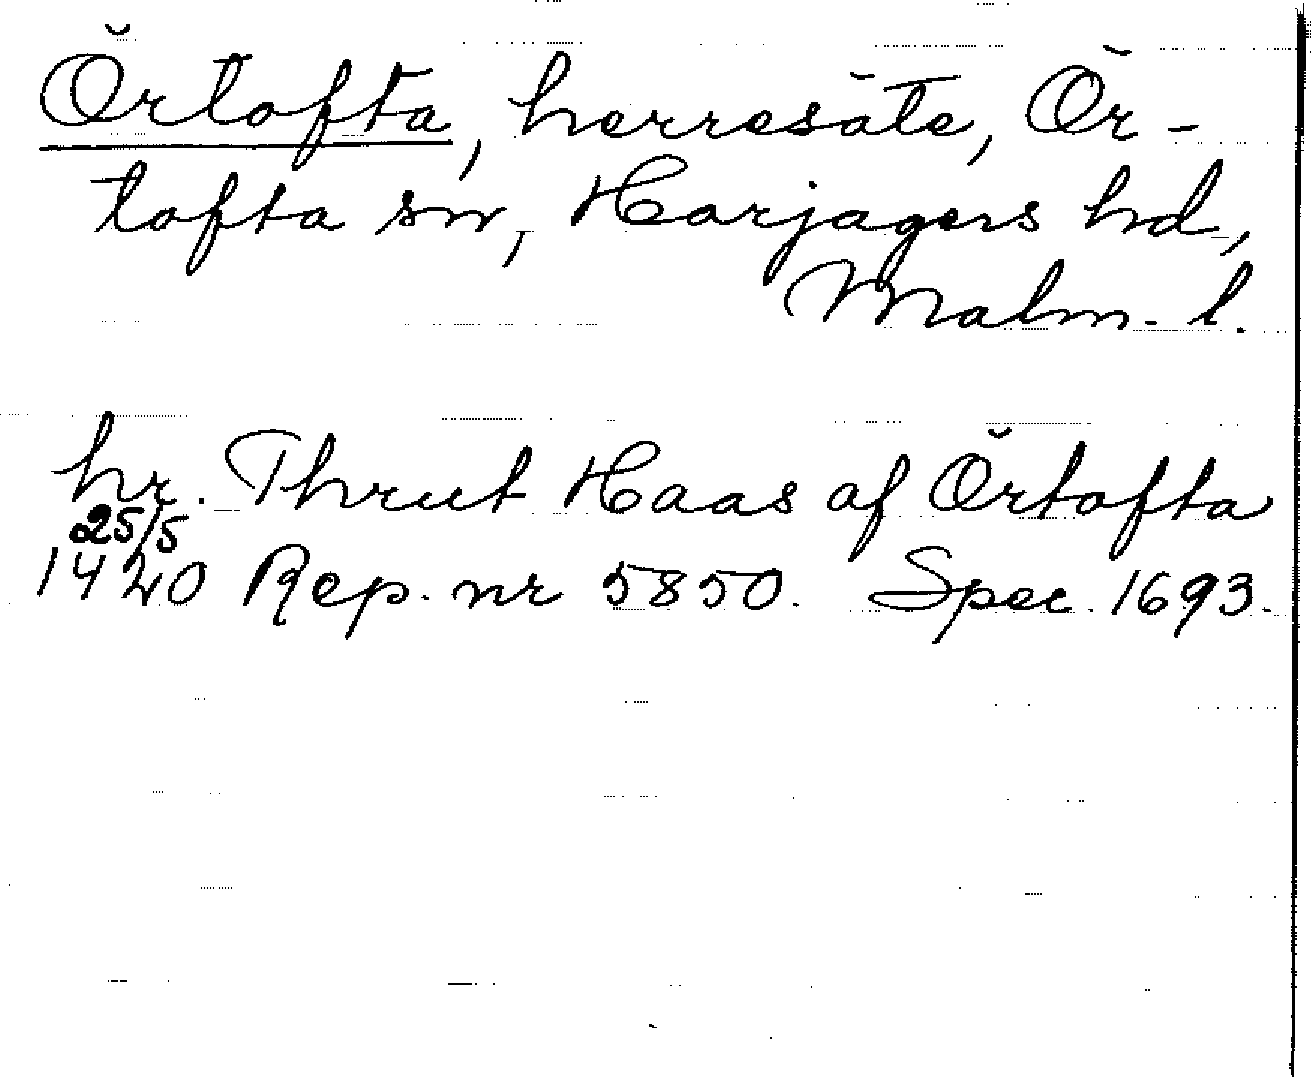 Örtofta, herresäte, Ör-
tofta sn, Harjagers hd,
Malm. l.
hr. Thrut Haas af Örtofta
25/5
1420 Rep. nr 5850. Spec. 1693.